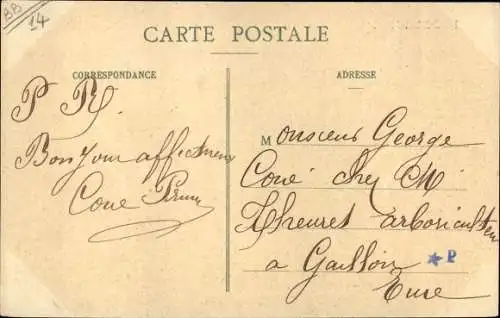 BB
14
CARTE POSTALE
CORRESPONDANCE
P P.
Bonjour affectueux
Coué
ADRESSE
Monsieur George
Coué chez M
Lheuret arboriculteur
a Gaillon
★ P
Eure